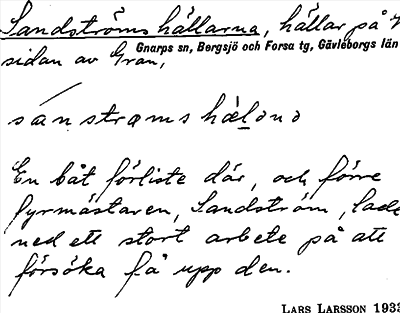 Sandströms hällarna, hällar på V
Gnarps sn, Bergsjö och Forsa tg, Gävleborgs län
sidan av Gran,
sanstrøms hæləna
En båt förliste där, och förre
fyrmästaren, Sandström, lade
ned ett stort arbete på att
försöka få upp den.
LARS LARSSON 1933